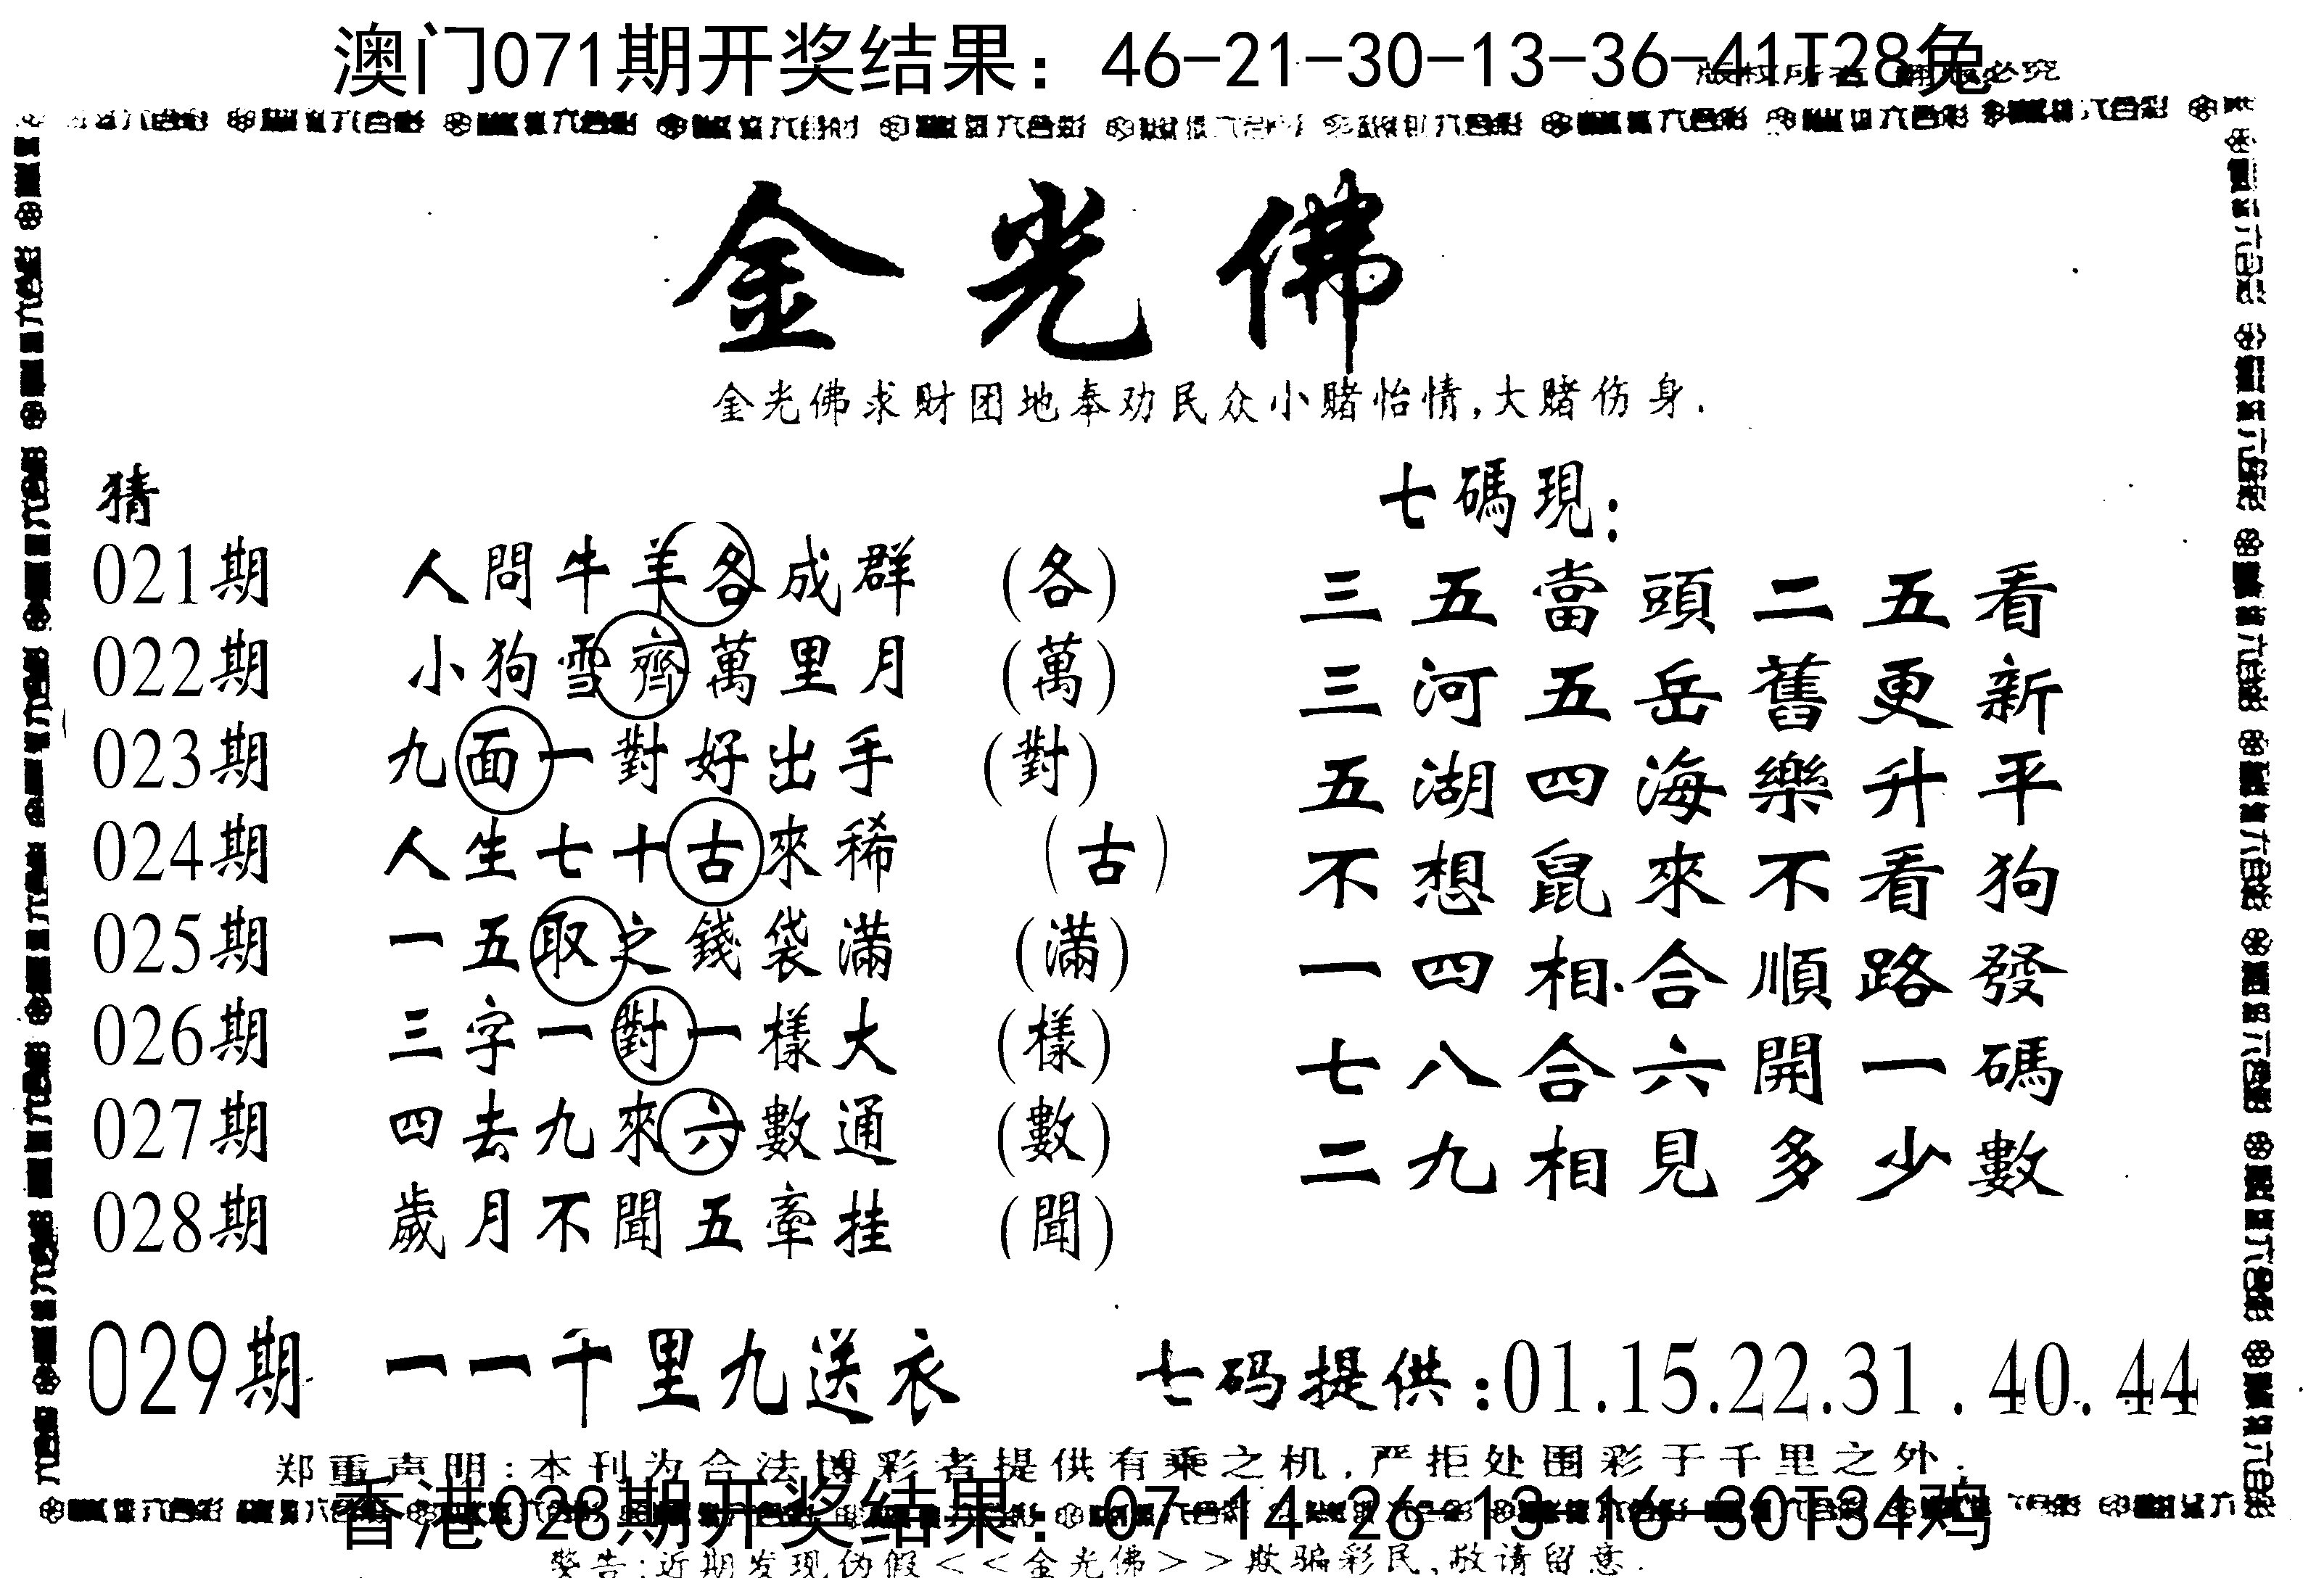 澳门071期开奖结果：46-21-30-13-36-41T28兔
版权所有 翻版必究
金光佛
金光佛求财团地奉劝民众小赌怡情,大赌伤身.
猜
021期 人問牛羊各成群 (各)
022期 小狗雪齊萬里月 (萬)
023期 九面一對好出手 (對)
024期 人生七十古來稀 (古)
025期 一五取之錢袋滿 (滿)
026期 三字一對一樣大 (樣)
027期 四去九來六數通 (數)
028期 歲月不聞五牽挂 (聞)
七碼現:
三五當頭二五看
三河五岳舊更新
五湖四海樂升平
不想鼠來不看狗
一四相合順路發
七八合六開一碼
二九相見多少數
029期 一一千里九送衣 七码提供:01.15.22.31.40.44
郑重声明:本刊为合法博彩者提供有乘之机,严拒处围彩于千里之外.
香港028期开奖结果：07-14-26-13-16-30T34鸡
警告:近期发现伪假<<金光佛>>欺骗彩民,敬请留意.